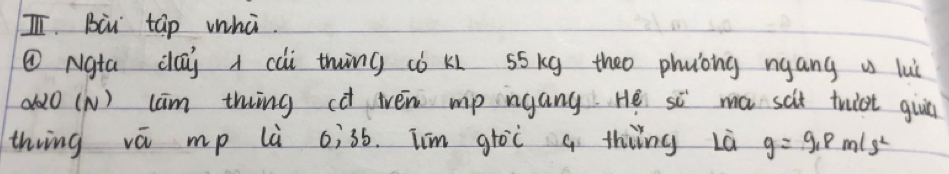 III. Bài tập vnhà.
① Ngta đẩy 1 cái thùng có KL 55 kg theo phương ngang vs lực
220 (N) làm thùng cđ trên mp ngang. Hệ số ma sát trượt giữa
thùng và mp là 0,35. Tìm gtốc thùng Là g = 9,8 m/s²